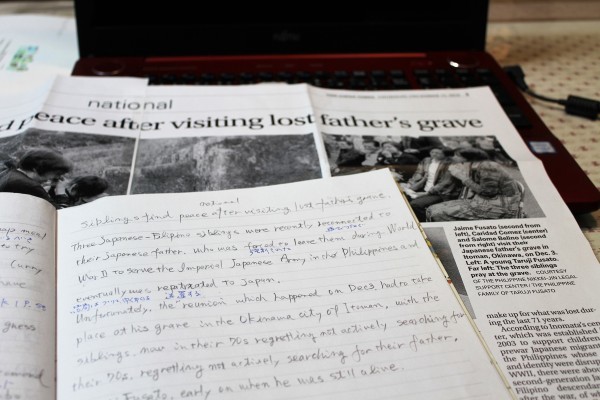 FUJITSU
national
peace after visiting lost father's grave
Jaime Fusato (second from
left), Caridad Gomez (center)
and Salome Balino (second
from right) visit their
Japanese father's grave in
Itoman, Okinawa, on Dec. 3.
Left: A young Taruji Fusato.
Far left: The three siblings
pray at the grave. COURTESY
OF THE PHILIPPINE NIKKEI-JIN LEGAL
SUPPORT CENTER / THE PHILIPPINE
FAMILY OF TARUJI FUSATO
make up for what was lost dur-
ing the last 71 years.
According to Inomata's cente
which was established
2003 to support children
prewar Japanese migrant
the Philippines whose
and identity were disrup
WWII, there were abou
second-generation Ja
Filipino descendan
after the war, of wh
national
Siblings find peace after visiting lost father's grave.
Three Japanese-Filipino siblings were recently reconnected to
their Japanese father, who was forced to leave them during World
War II to serve the Imperial Japanese Army in the Philippines and
eventually was repatriated to Japan.
送還する
Unfortunately, the reunion which happened on Dec3, had to take
place at his grave in the Okinawa city of Itoman, with the
siblings, now in their 70s regretting not actively searching for
their 70s, regretting not actively searching for their father,
Fusato, early on when he was still alive.